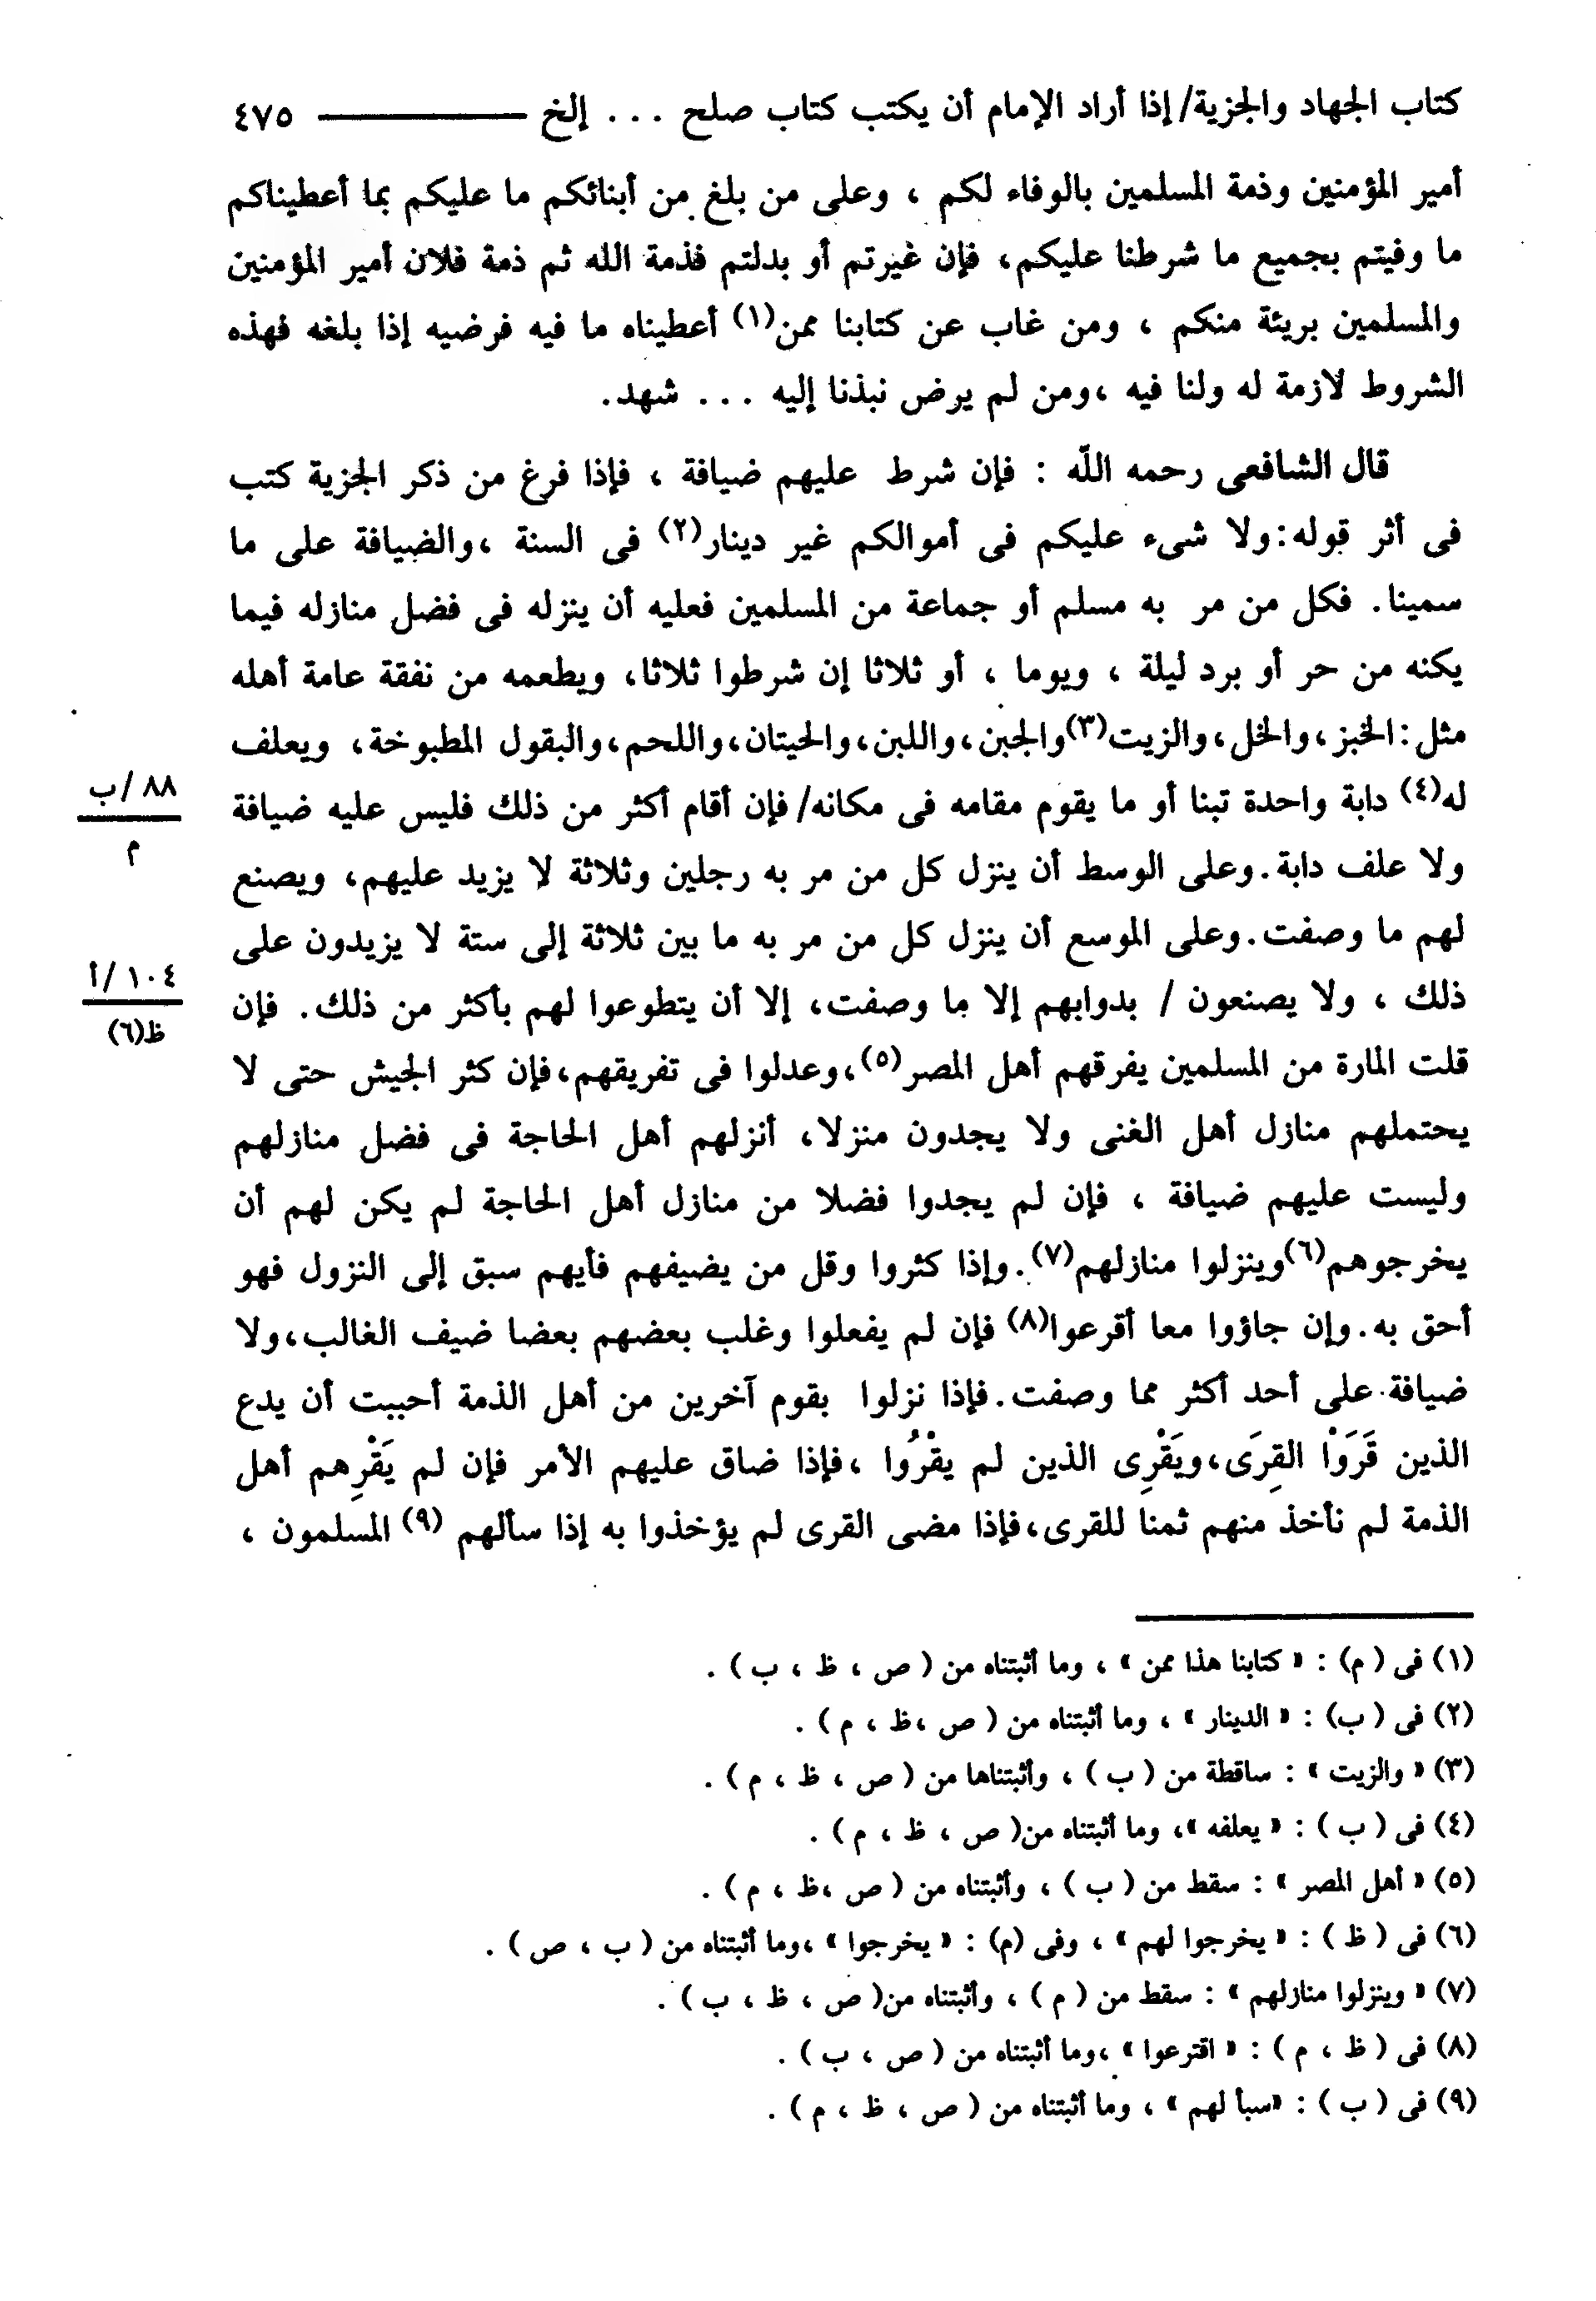 كتاب الجهاد والجزية/ إذا أراد الإمام أن يكتب كتاب صلح . . . إلخ ــــــــــ ٤٧٥
أمير المؤمنين وذمة المسلمين بالوفاء لكم ، وعلى من بلغ من أبنائكم ما عليكم بما أعطيناكم
ما وفيتم بجميع ما شرطنا عليكم، فإن غيرتم أو بدلتم فذمة الله ثم ذمة فلان أمير المؤمنين
والمسلمين بريئة منكم ، ومن غاب عن كتابنا ممن(١) أعطيناه ما فيه فرضيه إذا بلغه فهذه
الشروط لازمة له ولنا فيه ،ومن لم يرض نبذنا إليه . . . شهد.
قال الشافعى رحمه اللّه : فإن شرط عليهم ضيافة ، فإذا فرغ من ذكر الجزية كتب
فى أثر قوله:ولا شىء عليكم فى أموالكم غير دينار(٢) فى السنة ،والضيافة على ما
سمينا. فكل من مر به مسلم أو جماعة من المسلمين فعليه أن ينزله فى فضل منازله فيما
يكنه من حر أو برد ليلة ، ويوما ، أو ثلاثا إن شرطوا ثلاثا، ويطعمه من نفقة عامة أهله
مثل:الخبز،والخل،والزيت(٣)والجبن،واللبن،والحيتان،واللحم،والبقول المطبوخة، ويعلف
له(٤) دابة واحدة تبنا أو ما يقوم مقامه فى مكانه/ فإن أقام أكثر من ذلك فليس عليه ضيافة
٨٨ /ب
م
ولا علف دابة.وعلى الوسط أن ينزل كل من مر به رجلين وثلاثة لا يزيد عليهم، ويصنع
لهم ما وصفت.وعلى الموسع أن ينزل كل من مر به ما بين ثلاثة إلى ستة لا يزيدون على
ذلك ، ولا يصنعون / بدوابهم إلا ما وصفت، إلا أن يتطوعوا لهم بأكثر من ذلك. فإن
١٠٤ /أ
ظ(٦)
قلت المارة من المسلمين يفرقهم أهل المصر(٥)،وعدلوا فى تفريقهم،فإن كثر الجيش حتى لا
يحتملهم منازل أهل الغنى ولا يجدون منزلا، أنزلهم أهل الحاجة فى فضل منازلهم
وليست عليهم ضيافة ، فإن لم يجدوا فضلا من منازل أهل الحاجة لم يكن لهم أن
يخرجوهم(٦)وينزلوا منازلهم(٧).وإذا كثروا وقل من يضيفهم فأيهم سبق إلى النزول فهو
أحق به.وإن جاؤوا معا أقرعوا(٨) فإن لم يفعلوا وغلب بعضهم بعضا ضيف الغالب،ولا
ضيافة على أحد أكثر مما وصفت.فإذا نزلوا بقوم آخرين من أهل الذمة أحببت أن يدع
الذين قَرَوْا القِرَى،ويَقْرِى الذين لم يقْرُوا ،فإذا ضاق عليهم الأمر فإن لم يَقْرِهم أهل
الذمة لم نأخذ منهم ثمنا للقرى،فإذا مضى القرى لم يؤخذوا به إذا سألهم (٩) المسلمون ،
(١) فى ( م) : « كتابنا هذا ممن » ، وما أثبتناه من ( ص ، ظ ، ب ) .
(٢) فى ( ب) : « الدينار » ، وما أثبتناه من ( ص ،ظ ، م ) .
(٣) « والزيت » : ساقطة من ( ب ) ، وأثبتناها من ( ص ، ظ ، م ) .
(٤) فى ( ب ) : « يعلفه »، وما أثبتناه من( ص ، ظ ، م ) .
(٥) « أهل المصر » : سقط من ( ب ) ، وأثبتناه من ( ص ،ظ ، م ) .
(٦) فى ( ظ ) : « يخرجوا لهم » ، وفى (م) : « يخرجوا » ،وما أثبتناه من ( ب ، ص ) .
(٧) « وينزلوا منازلهم » : سقط من ( م ) ، وأثبتناه من( ص ، ظ ، ب ) .
(٨) فى ( ظ ، م ) : « اقترعوا » ،وما أثبتناه من ( ص ، ب ) .
(٩) فى ( ب ) : «سبأ لهم » ، وما أثبتناه من ( ص ، ظ ، م ) .